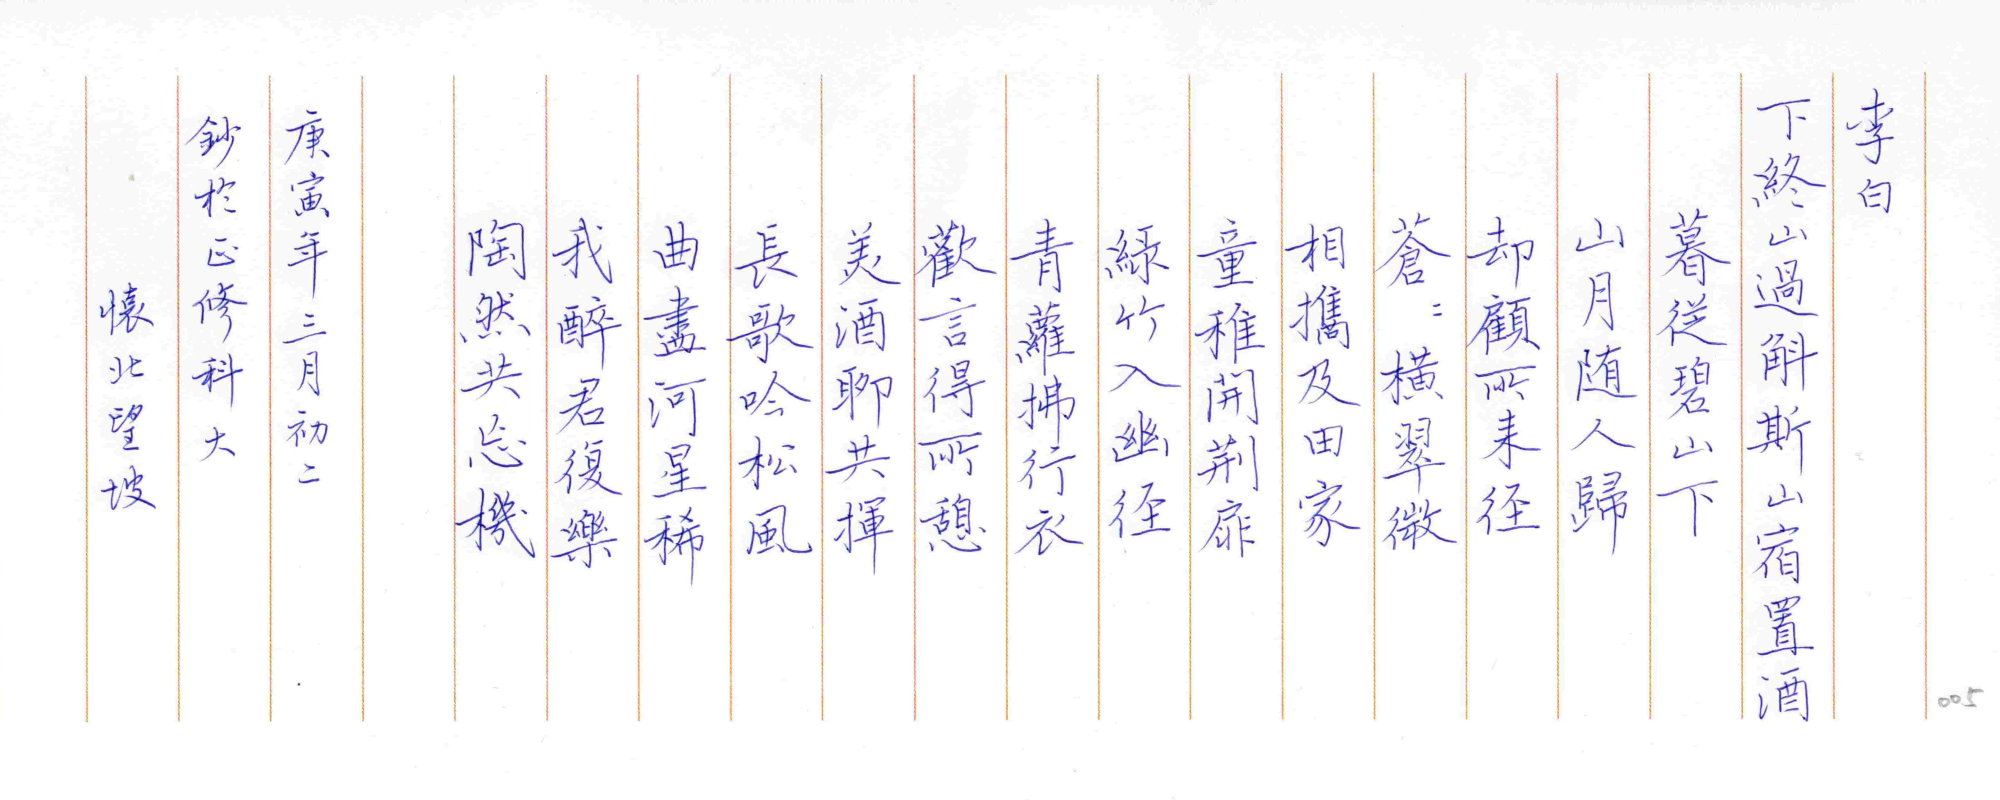 李白
下終山過斛斯山宿置酒
暮從碧山下
山月随人歸
却顧所来径
蒼〻橫翠微
相攜及田家
童稚開荆扉
綠竹入幽径
青蘿拂行衣
歡言得所憩
美酒聊共揮
長歌吟松風
曲盡河星稀
我醉君復樂
陶然共忘機
庚寅年三月初二
鈔於正修科大
懷北望坡
005